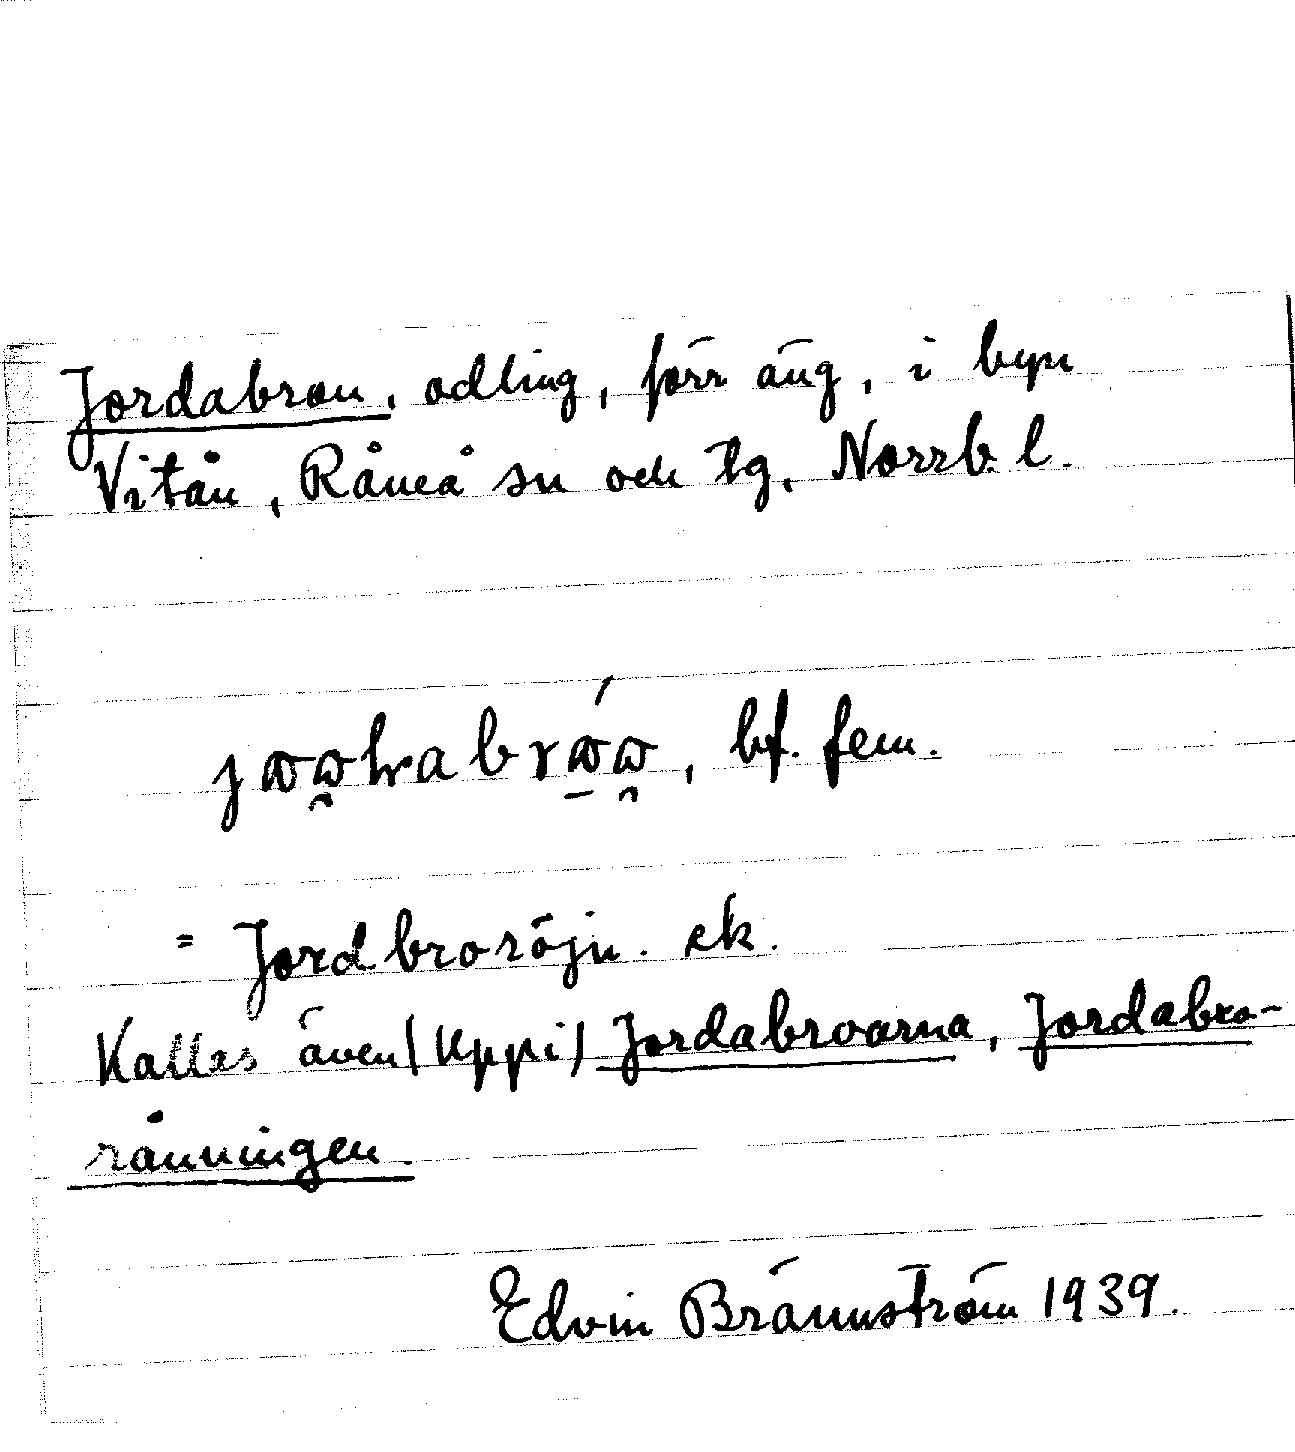 Jordabron, odling, förr äng, i byn
Vitån, Råneå sn och tg, Norrb. l.
bf. fem.
= Jordbroröjn. ek.
Kallas även (Uppi) Jordabroarna, Jordabro-
rånningen.
Edvin Brännström 1939.